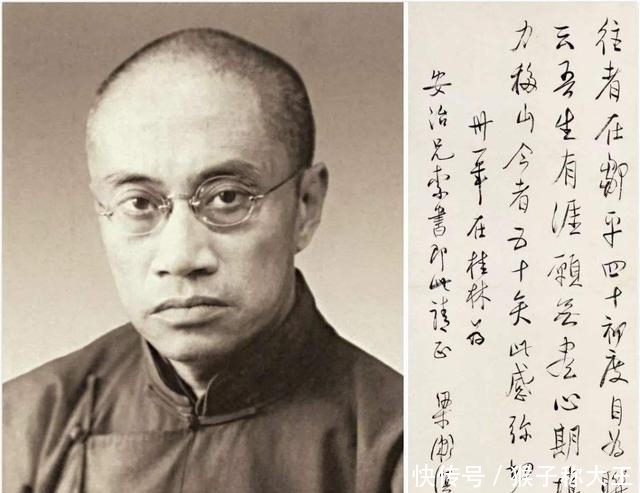 往者在鄒平四十初度自为
云吾生有涯願無盡心期填
力移山今者五十矣此感弥
卅一年在桂林为
安治兄索書即此請正 梁漱
快传号 / 猴子称大王